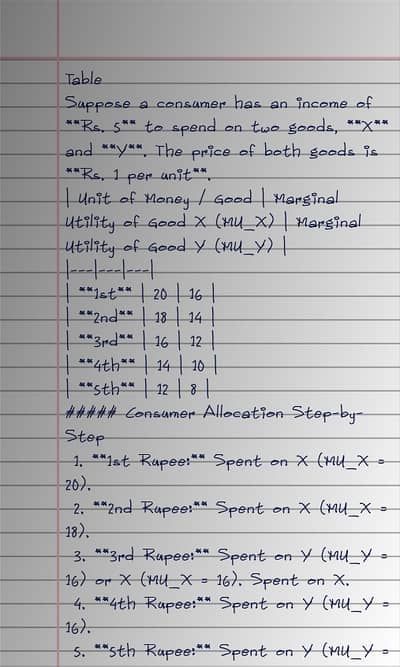 Table
Suppose a consumer has an income of
**Rs. 5** to spend on two goods, **X**
and **Y**. The price of both goods is
**Rs. 1 per unit**.
| Unit of Money / Good | Marginal
Utility of Good X (MU_X) | Marginal
Utility of Good Y (MU_Y) |
|---|---|---|
| **1st** | 20 | 16 |
| **2nd** | 18 | 14 |
| **3rd** | 16 | 12 |
| **4th** | 14 | 10 |
| **5th** | 12 | 8 |
##### Consumer Allocation Step-by-
Step
1. **1st Rupee:** Spent on X (MU_X =
20).
2. **2nd Rupee:** Spent on X (MU_X =
18).
3. **3rd Rupee:** Spent on Y (MU_Y =
16) or X (MU_X = 16). Spent on X.
4. **4th Rupee:** Spent on Y (MU_Y =
16).
5. **5th Rupee:** Spent on Y (MU_Y =